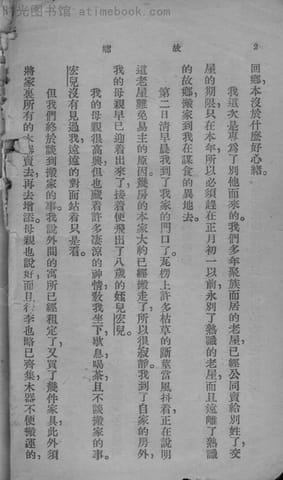 时光图书馆 - atimebook.com
故鄉
2
回鄉本沒於什麼好心緒。
我這次是專爲了別他而來的。我們多年聚族而居的老屋已經公同賣給別姓了，交
屋的期限，只在本年，所以必須趕在正月初一以前，永別了熟識的老屋，而且遠離了熟識
的故鄉，搬家到我在謀食的異地去。
第二日清早晨我到了我家的門口了。瓦楞上許多枯草的斷莖當風抖着，正在說明
這老屋難免易主的原因。幾房的本家大約已經搬走了，所以很寂靜。我到了自家的房外，
我的母親早已迎着出來了，接着便飛出了八歲的姪兒宏兒。
我的母親很高興，但也藏着許多凄涼的神情，敎我坐下，歇息，喝茶，且不談搬家的事。
宏兒沒有見過我，遠遠的對面站着只是看。
但我們終於談到搬家的事。我說外間的寓所已經租定了，又買了幾件家具，此外須
將家裏所有的木器賣去，再去增添。母親也說好，而且行李也略已齊集，木器不便搬運的，